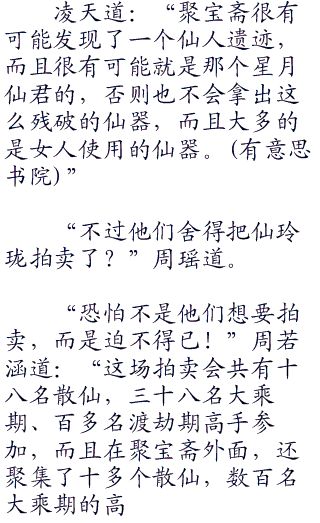 凌天道：“聚宝斋很有
可能发现了一个仙人遗迹，
而且很有可能就是那个星月
仙君的，否则也不会拿出这
么残破的仙器，而且大多的
是女人使用的仙器。(有意思
书院)”
“不过他们舍得把仙玲
珑拍卖了？”周瑶道。
“恐怕不是他们想要拍
卖，而是迫不得已！”周若
涵道：“这场拍卖会共有十
八名散仙，三十八名大乘
期、百多名渡劫期高手参
加，而且在聚宝斋外面，还
聚集了十多个散仙，数百名
大乘期的高